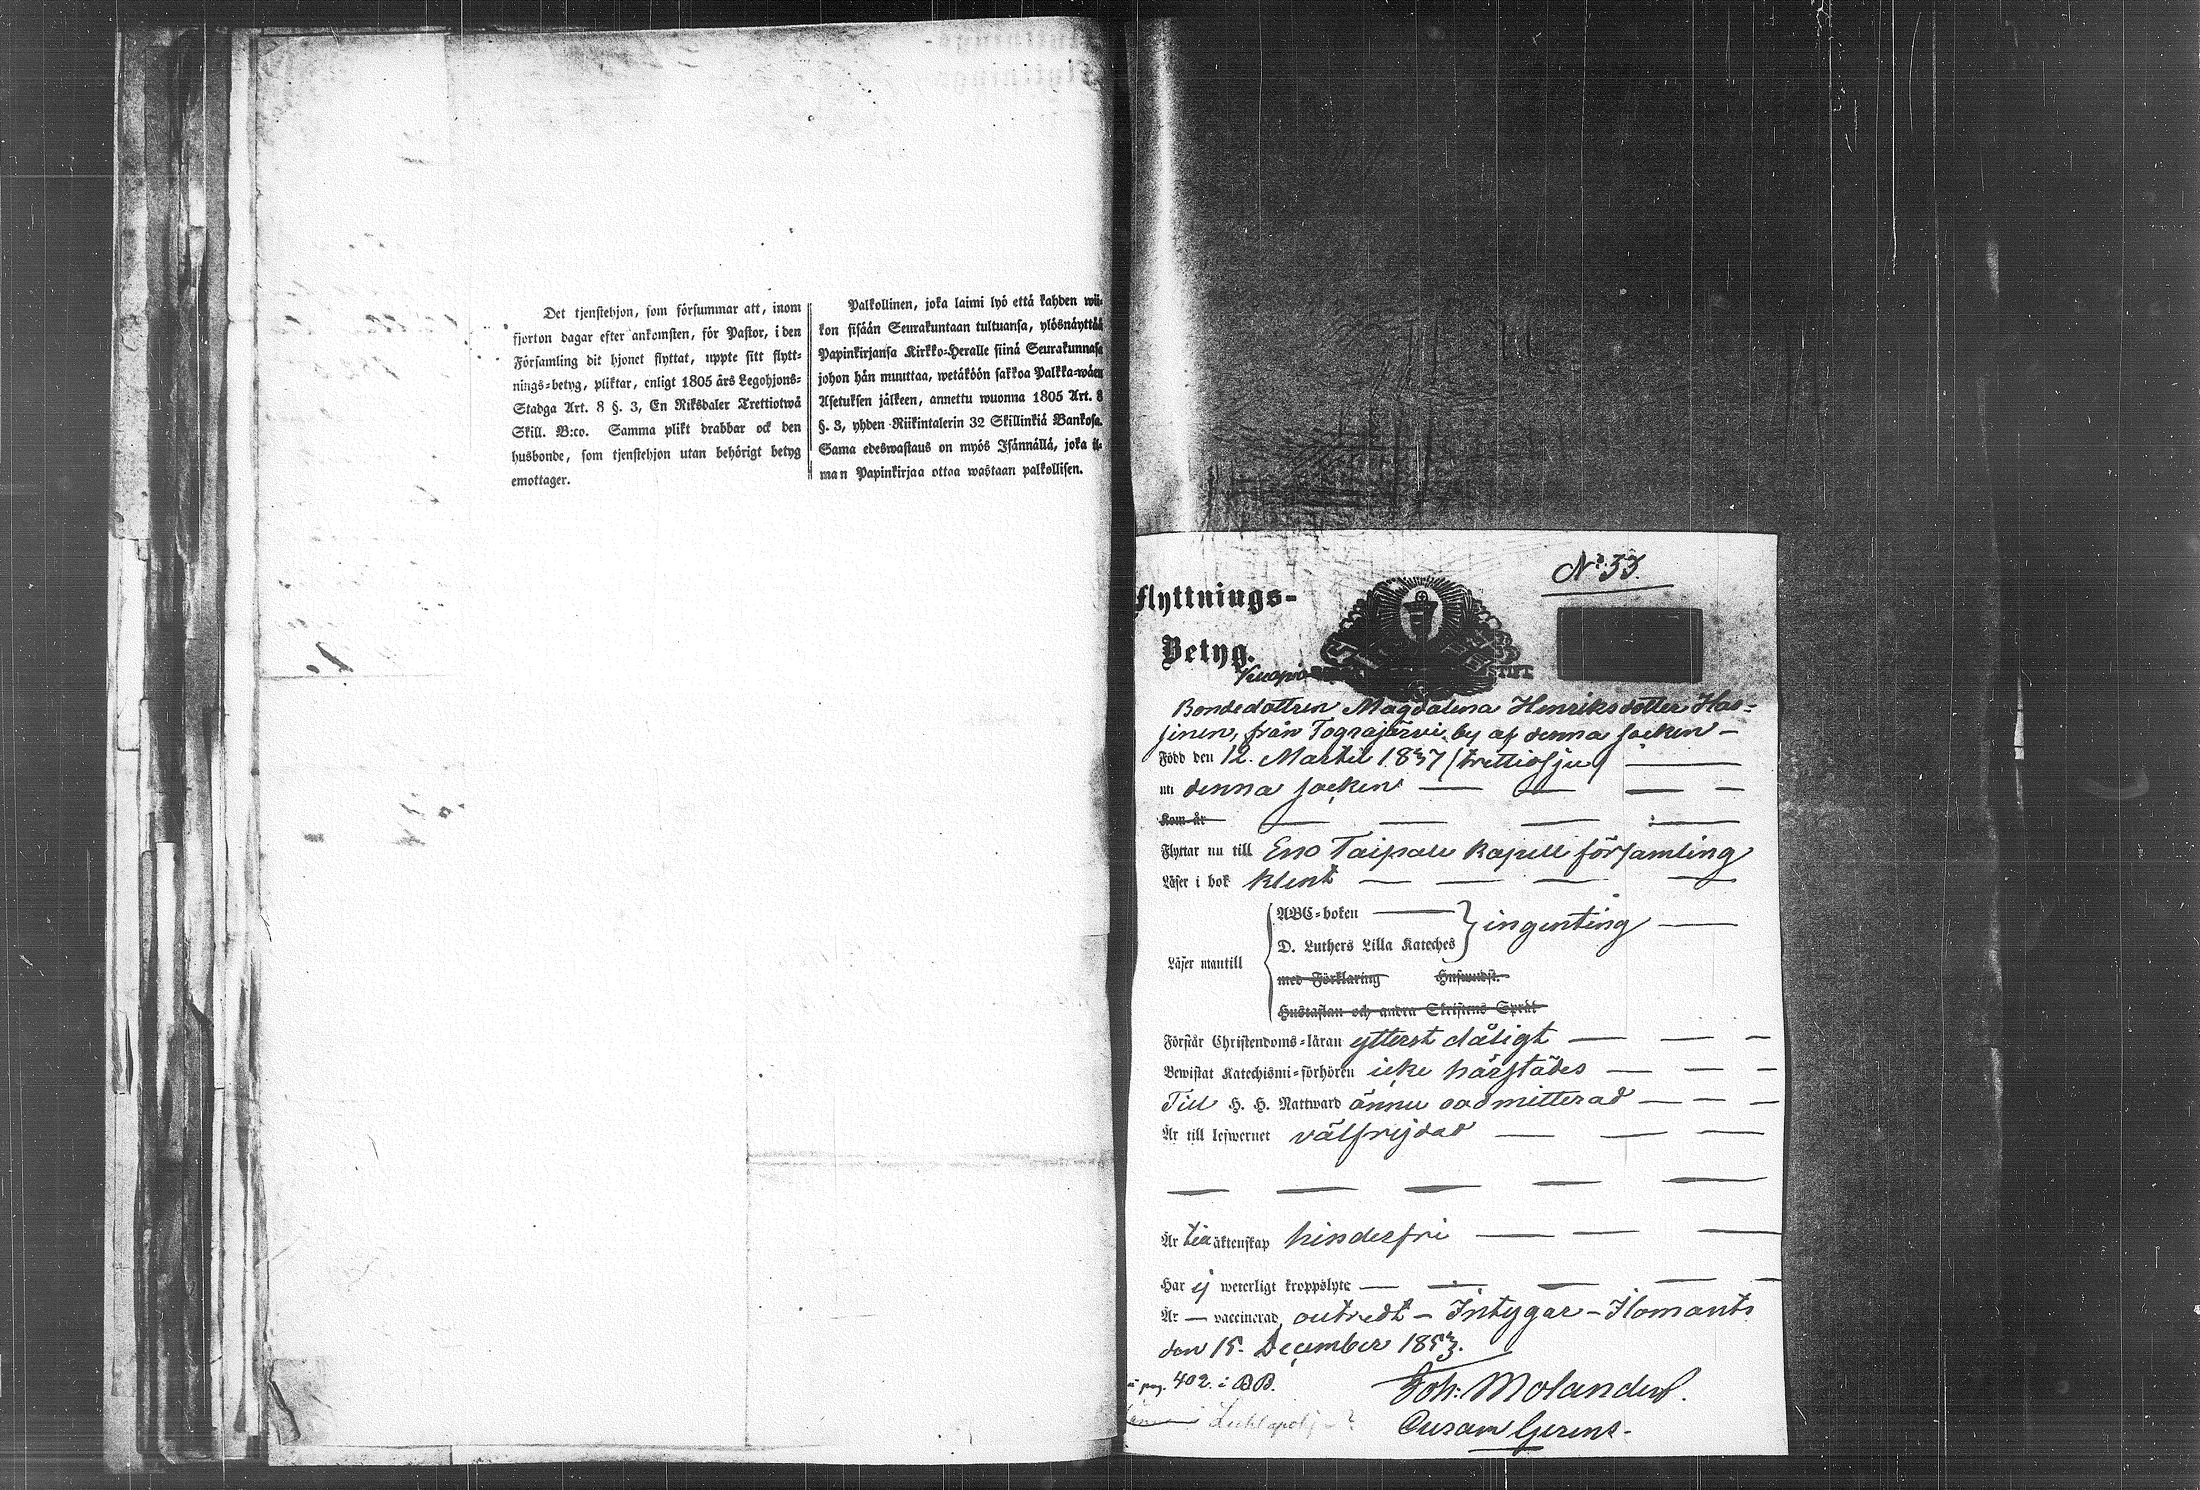 Det tjenstehjon, som försummar att, inom
fjorton dagar efter ankomsten, för Pastor, i den
Församling dit hjonet flyttat, uppte sitt flytt-
nings-betyg, pliktar, enligt 1805 års Legohjons-
Stadga Art. 8 §. 3, En Riksdaler Trettiotwå
Skill. B:co. Samma plikt drabbar ock den
husbonde, som tjenstehjon utan behörigt betyg
emottager.
Palkollinen, joka laimi lyö että kahden wii-
kon sisään Seurakuntaan tultuansa, ylösnäyttää
Papinkirjansa Kirkko-Heralle siinä Seurakunnasa
johon hän muuttaa, wetäköön sakkoa Palkka-wäen
Asetuksen jälkeen, annettu wuonna 1805 Art. 8
§. 3, yhden Riikintalerin 32 Skillinkiä Bankosa.
Sama edeswastaus on myös Isännällä, joka il-
man Papinkirjaa ottaa wastaan palkollisen.
No 33.
Flyttnings-
Betyg.
Bondedottren Magdalena Henriksdotter Has-
sinen, från by af denna socken —
Född den 12. Martii 1837 (trettiosju) —
uti denna socken — — — —
Kom år — — — —
Flyttar nu till Eno Taipale Kapell församling
Läser i bok klent — — — —
ABC-boken —
D. Luthers Lilla Kateches } ingenting —
Läser utantill
med Förklaring Huswudst.
Hustaflan och andra Skriftens Språk
Förstår Christendoms-läran ytterst dåligt — — —
Bewistat Katechismi-förhören icke härstädes — — —
Till H. H. Nattward ännu oadmitterad — — —
Är till lefwernet välfrejdad — — —
— — — — —
Är till äktenskap hinderfri — — —
Har ej weterligt kroppslyte — — — — —
Är — vaccinerad, outredt — Intygar — Ilomants
den 15. December 1853.
pag. 402. i BB.
Joh: Molander.
Curam Gerens.